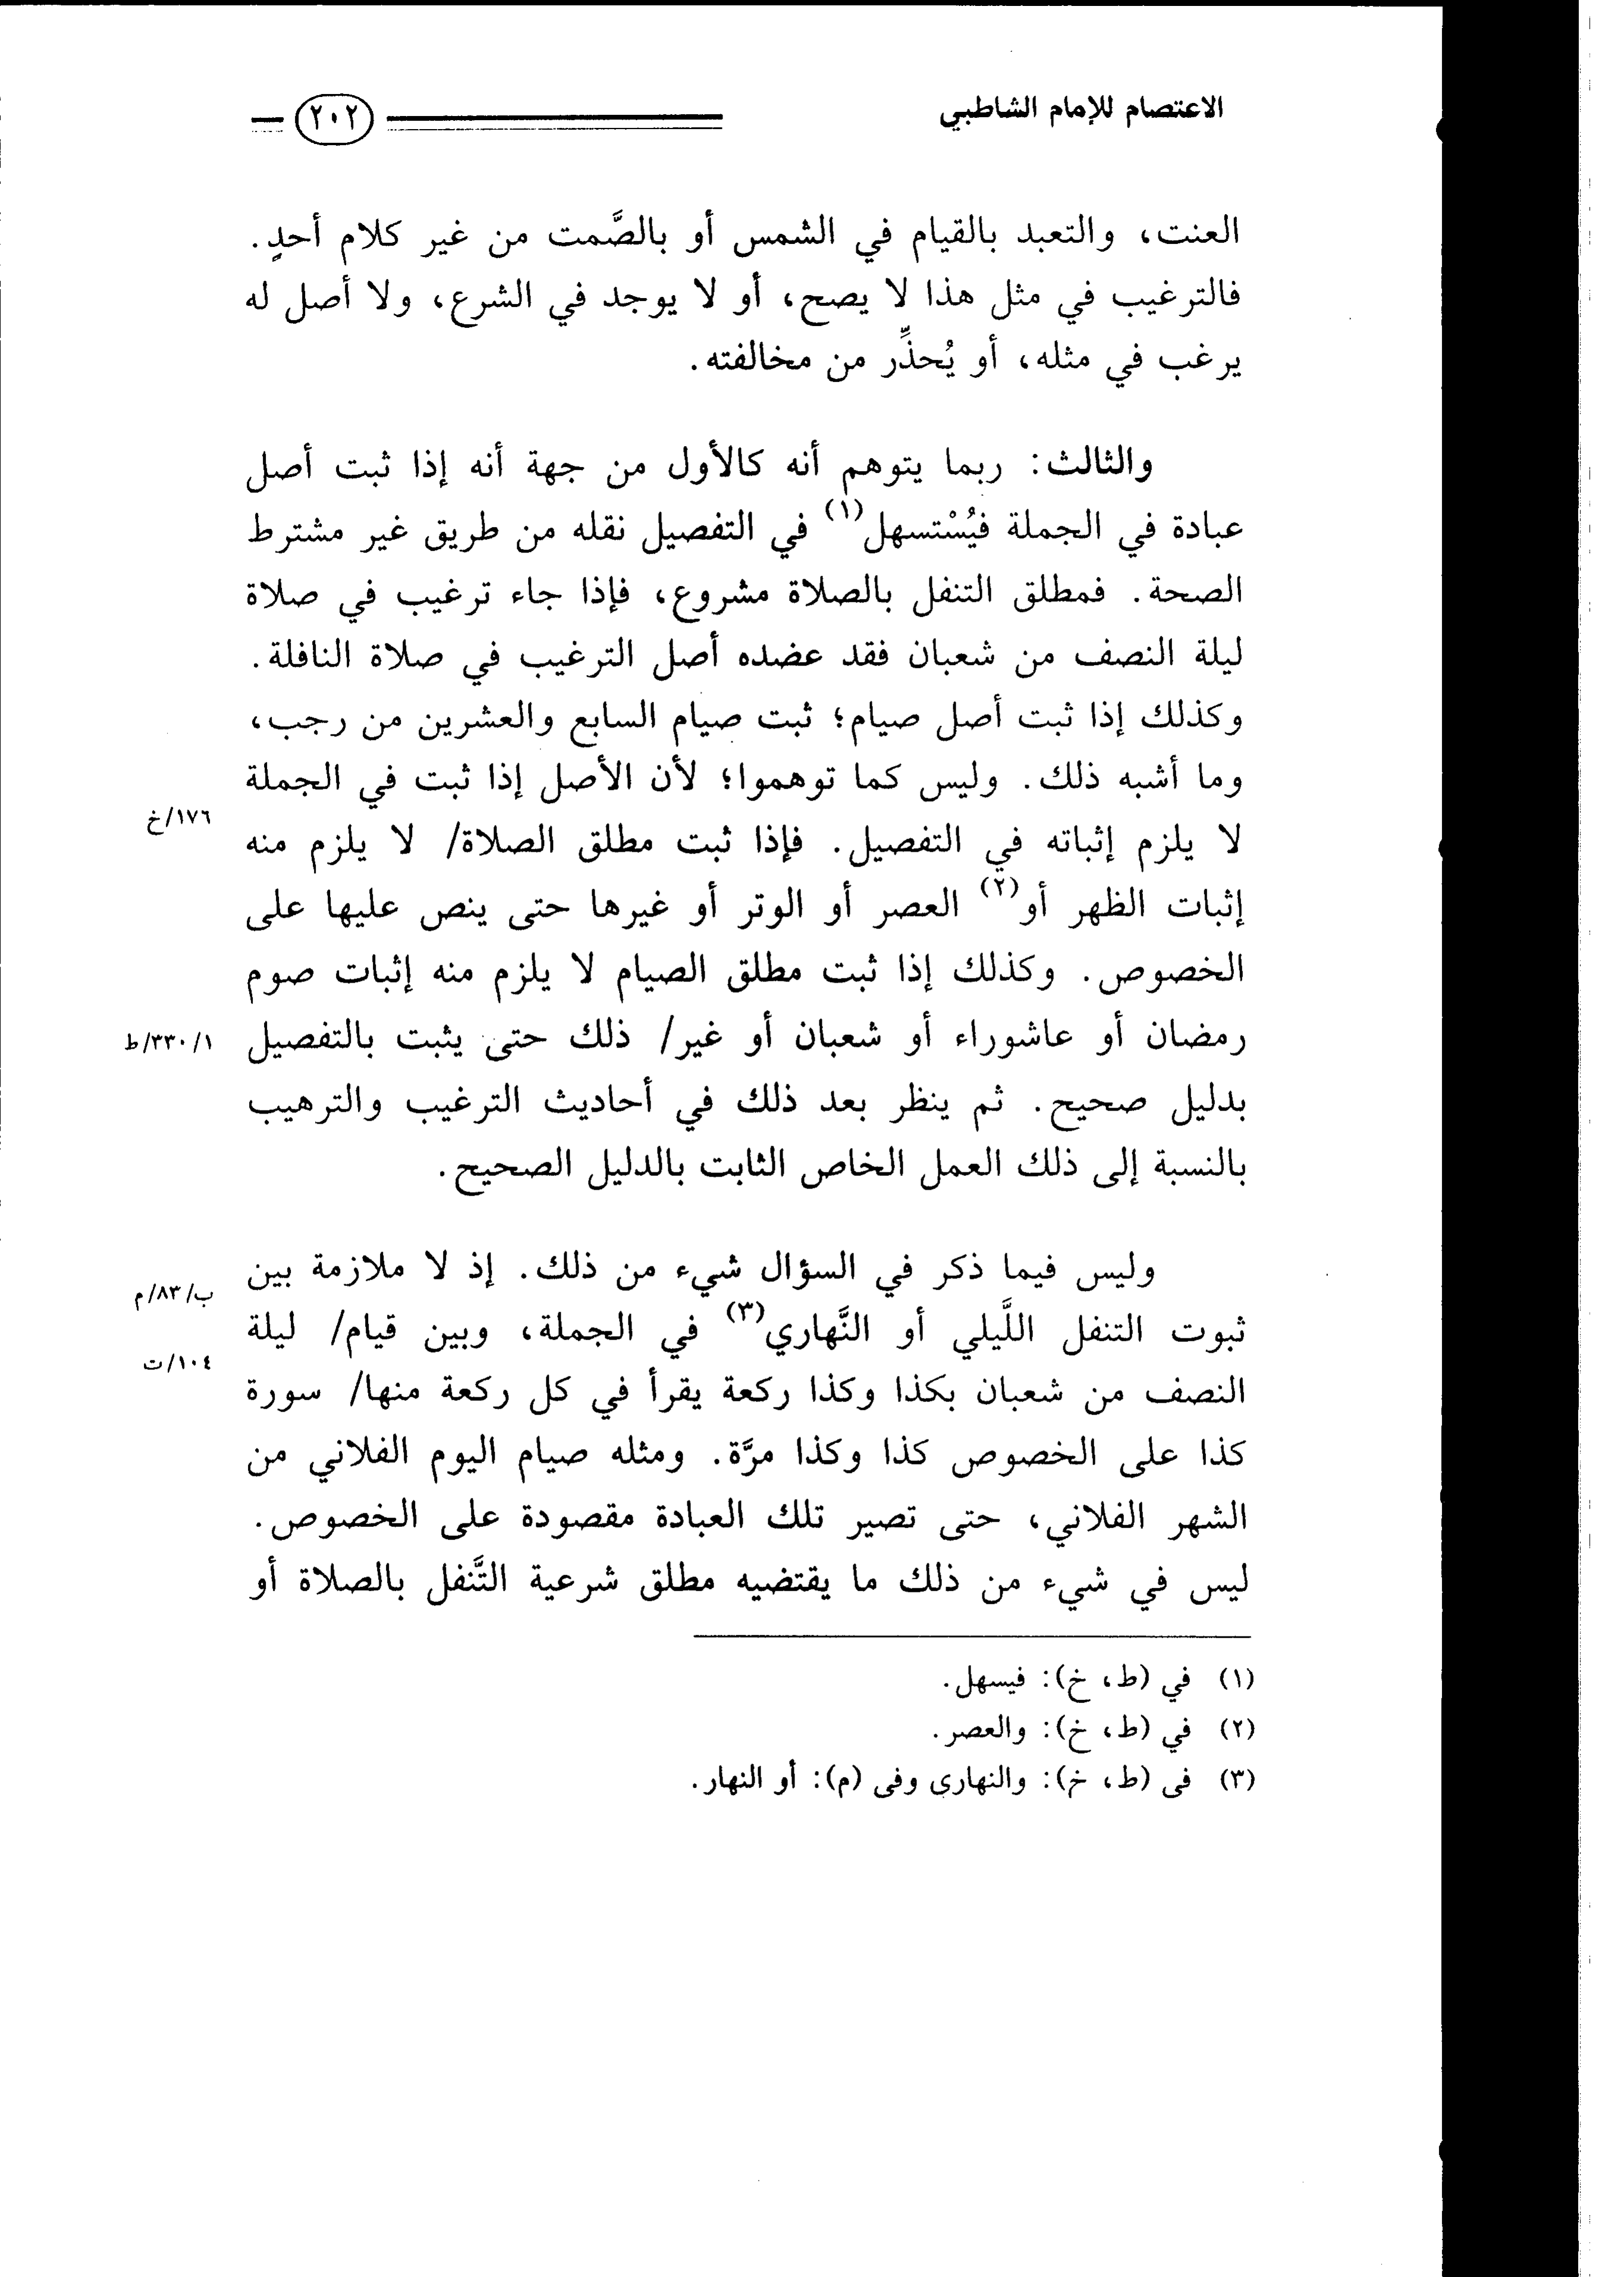 الاعتصام للإمام الشاطبي
٢٠٢
العنت، والتعبد بالقيام في الشمس أو بالصَّمت من غير كلام أحدٍ.
فالترغيب في مثل هذا لا يصح، أو لا يوجد في الشرع، ولا أصل له
يرغب في مثله، أو يُحذِّر من مخالفته.
والثالث: ربما يتوهم أنه كالأول من جهة أنه إذا ثبت أصل
عبادة في الجملة فيُسْتسهل(١) في التفصيل نقله من طريق غير مشترط
الصحة. فمطلق التنفل بالصلاة مشروع، فإذا جاء ترغيب في صلاة
ليلة النصف من شعبان فقد عضده أصل الترغيب في صلاة النافلة.
وكذلك إذا ثبت أصل صيام؛ ثبت صيام السابع والعشرين من رجب،
وما أشبه ذلك. وليس كما توهموا؛ لأن الأصل إذا ثبت في الجملة
١٧٦/خ
لا يلزم إثباته في التفصيل. فإذا ثبت مطلق الصلاة/ لا يلزم منه
إثبات الظهر أو(٢) العصر أو الوتر أو غيرها حتى ينص عليها على
الخصوص. وكذلك إذا ثبت مطلق الصيام لا يلزم منه إثبات صوم
رمضان أو عاشوراء أو شعبان أو غير/ ذلك حتى يثبت بالتفصيل
٣٣٠/١/ط
بدليل صحيح. ثم ينظر بعد ذلك في أحاديث الترغيب والترهيب
بالنسبة إلى ذلك العمل الخاص الثابت بالدليل الصحيح.
وليس فيما ذكر في السؤال شيء من ذلك. إذ لا ملازمة بين
ب/٨٣/م
ثبوت التنفل اللَّيلي أو النَّهاري(٣) في الجملة، وبين قيام/ ليلة
١٠٤/ت
النصف من شعبان بكذا وكذا ركعة يقرأ في كل ركعة منها/ سورة
كذا على الخصوص كذا وكذا مرَّة. ومثله صيام اليوم الفلاني من
الشهر الفلاني، حتى تصير تلك العبادة مقصودة على الخصوص.
ليس في شيء من ذلك ما يقتضيه مطلق شرعية التَّنفل بالصلاة أو
(١) في (ط، خ): فيسهل.
(٢) في (ط، خ): والعصر.
(٣) في (ط، خ): والنهاري وفي (م): أو النهار.